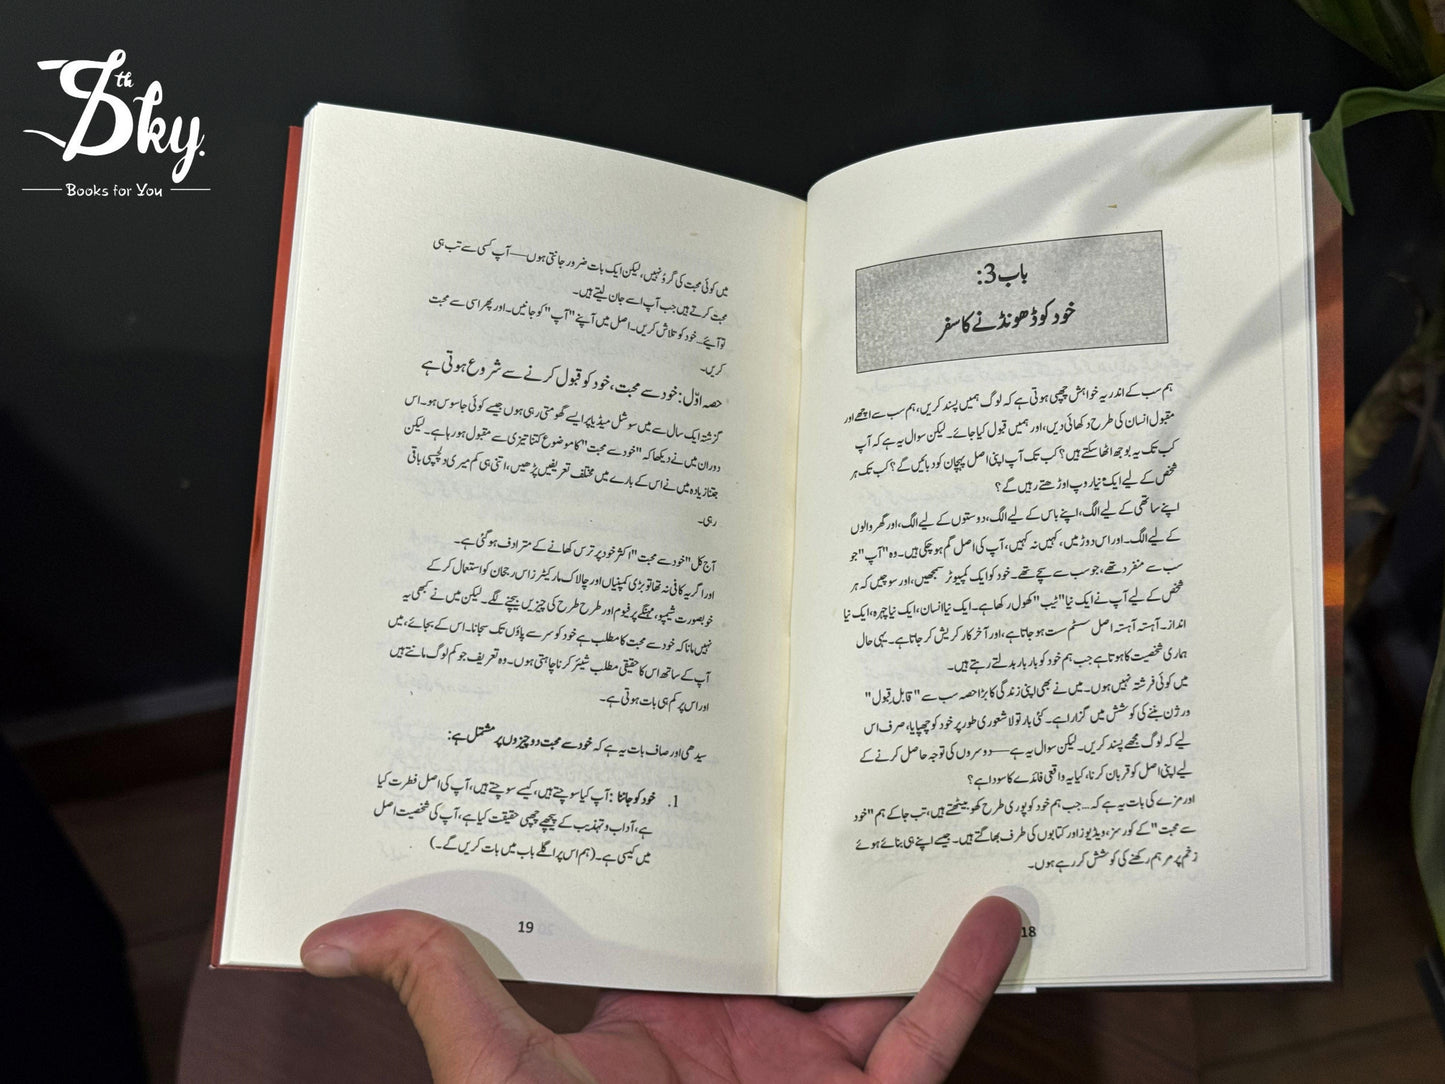 5th Sky.
Books for You
باب 3:
خود کو ڈھونڈنے کا سفر
ہم سب کے اندر یہ خواہش چھپی ہوتی ہے کہ لوگ ہمیں پسند کریں، ہم سب سے اچھے اور
مقبول انسان کی طرح دکھائی دیں، اور ہمیں قبول کیا جائے۔ لیکن سوال یہ ہے کہ آپ
کب تک یہ بوجھ اٹھا سکتے ہیں؟ کب تک آپ اپنی اصل پہچان کو دبائیں گے؟ کب تک ہر
شخص کے لیے ایک نیا روپ اوڑھتے رہیں گے؟
اپنے ساتھی کے لیے الگ، اپنے باس کے لیے الگ، دوستوں کے لیے الگ، اور گھر والوں
کے لیے الگ۔ اور اس دوڑ میں، کہیں نہ کہیں، آپ کی اصل گم ہو چکی ہیں۔ وہ "آپ" جو
سب سے منفرد تھے، جو سب سے سچے تھے۔ خود کو ایک کمپیوٹر سمجھیں، اور سوچیں کہ ہر
شخص کے لیے آپ نے ایک نیا "ٹیب" کھول رکھا ہے۔ ایک نیا انسان، ایک نیا چہرہ، ایک نیا
انداز۔ آہستہ آہستہ اصل سسٹم سست ہو جاتا ہے، اور آخر کار کریش کر جاتا ہے۔ یہی حال
ہماری شخصیت کا ہوتا ہے جب ہم خود کو بار بار بدلتے رہتے ہیں۔
میں کوئی فرشتہ نہیں ہوں۔ میں نے بھی اپنی زندگی کا بڑا حصہ سب سے "قابل قبول"
ورژن بننے کی کوشش میں گزارا ہے۔ کئی بار تو لاشعوری طور پر خود کو چھپایا، صرف اس
لیے کہ لوگ مجھے پسند کریں۔ لیکن سوال یہ ہے—دوسروں کی توجہ حاصل کرنے کے
لیے اپنی اصل کو قربان کرنا، کیا یہ واقعی فائدے کا سودا ہے؟
اور مزے کی بات یہ ہے کہ... جب ہم خود کو پوری طرح کھو بیٹھتے ہیں، تب جا کے ہم "خود
سے محبت" کے کورسز، ویڈیوز اور کتابوں کی طرف بھاگتے ہیں۔ جیسے اپنے ہی بنائے ہوئے
زخم پر مرہم رکھنے کی کوشش کر رہے ہوں۔
18
میں کوئی محبت کی گرُو نہیں، لیکن ایک بات ضرور جانتی ہوں—آپ کسی سے تب ہی
محبت کرتے ہیں جب آپ اسے جان لیتے ہیں۔
تو آیئے... خود کو تلاش کریں۔ اصل میں آپنے "آپ" کو جانیں۔ اور پھر اسی سے محبت
کریں۔
حصہ اوّل: خود سے محبت، خود کو قبول کرنے سے شروع ہوتی ہے
گزشتہ ایک سال سے میں سوشل میڈیا پر ایسے گھومتی رہی ہوں جیسے کوئی جاسوس ہو۔ اس
دوران میں نے دیکھا کہ "خود سے محبت" کا موضوع کتنا تیزی سے مقبول ہو رہا ہے۔ لیکن
جتنا زیادہ میں نے اس کے بارے میں مختلف تعریفیں پڑھیں، اتنی ہی کم میری دلچسپی باقی
رہی۔
آج کل "خود سے محبت" اکثر خود پر ترس کھانے کے مترادف ہو گئی ہے۔
اور اگر یہ کافی نہ تھا تو بڑی کمپنیاں اور چالاک مارکیٹرز اس رجحان کو استعمال کر کے
خوبصورت شیمپو، مہنگے پرفیوم اور طرح طرح کی چیزیں بیچنے لگے۔ لیکن میں نے کبھی یہ
نہیں مانا کہ خود سے محبت کا مطلب ہے خود کو سر سے پاؤں تک سجانا۔ اس کے بجائے، میں
آپ کے ساتھ اس کا حقیقی مطلب شیئر کرنا چاہتی ہوں۔ وہ تعریف جو کم لوگ مانتے ہیں
اور اس پر کم ہی بات ہوتی ہے۔
سیدھی اور صاف بات یہ ہے کہ خود سے محبت دو چیزوں پر مشتمل ہے:
1. خود کو جاننا: آپ کیا سوچتے ہیں، کیسے سوچتے ہیں، آپ کی اصل فطرت کیا
ہے، آداب و تہذیب کے پیچھے چھپی حقیقت کیا ہے، آپ کی شخصیت اصل
میں کیسی ہے۔ (ہم اس پر اگلے باب میں بات کریں گے۔)
19